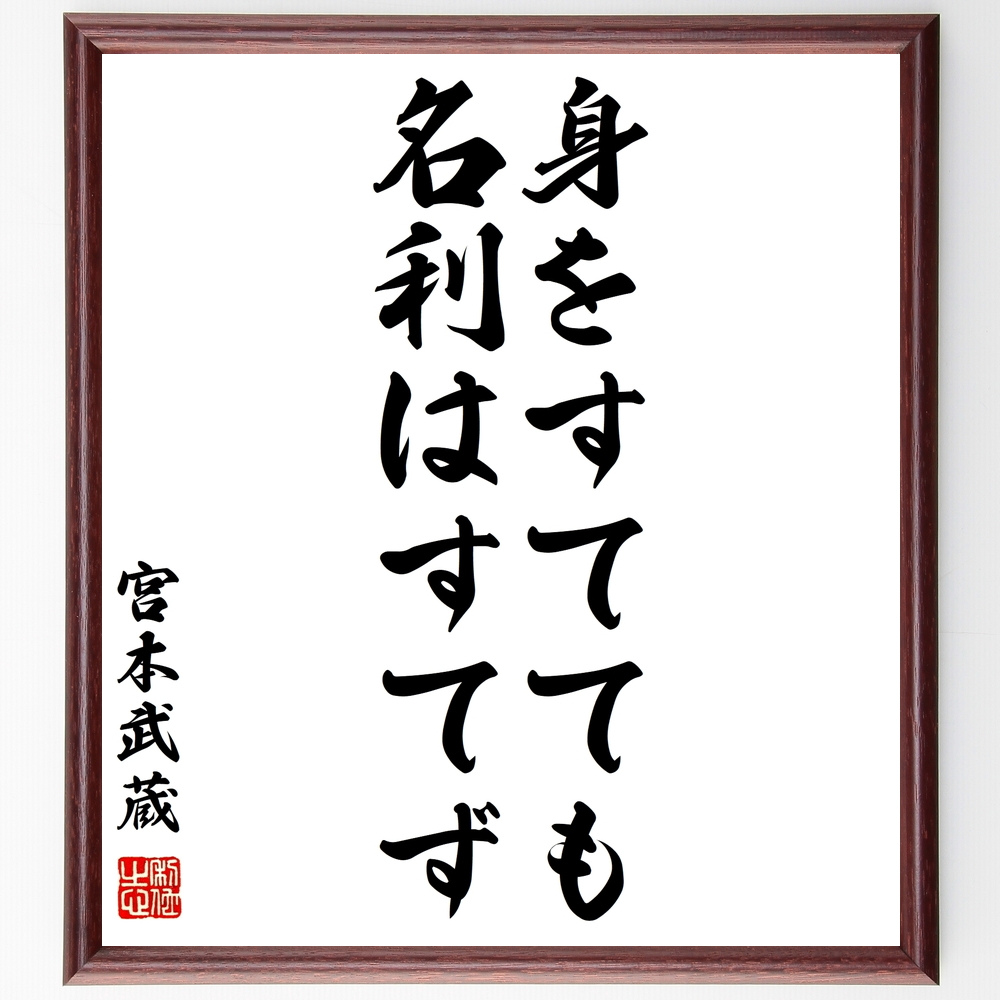 身をすてても
名利はすてず
宮本武蔵